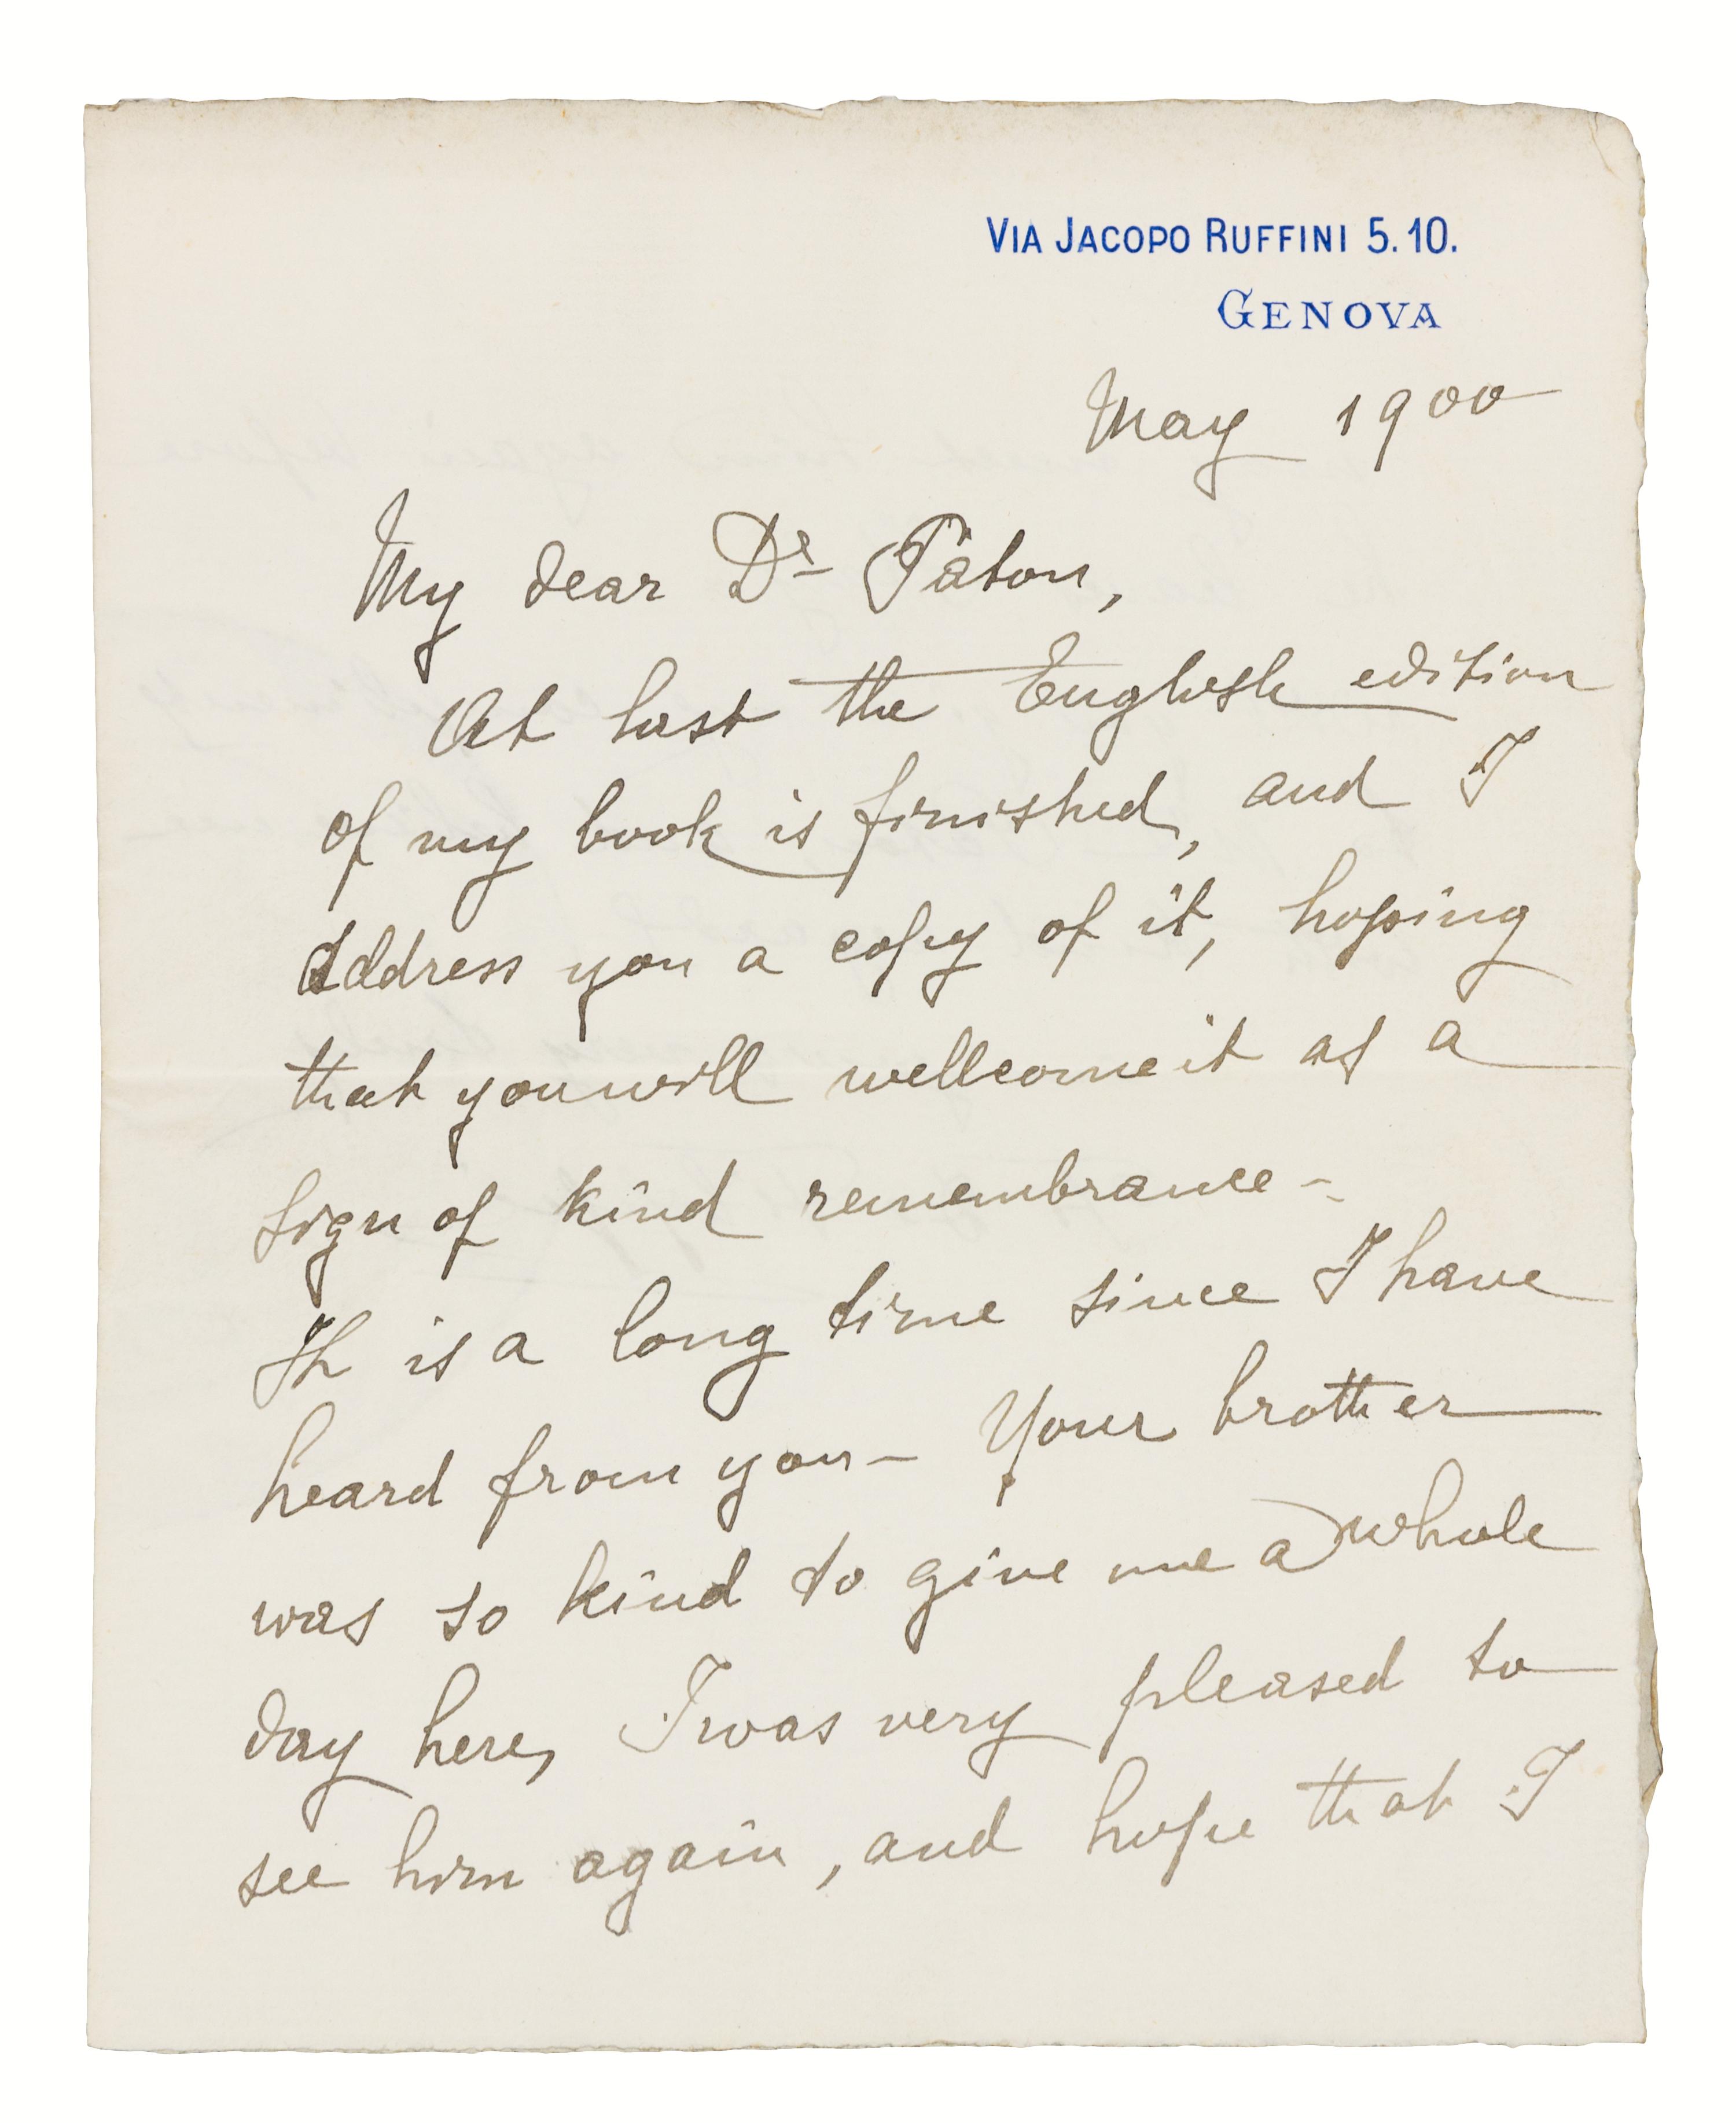 VIA JACOPO RUFFINI 5.10.
GENOVA
May 1900
My dear Dr Pàton,
At last the English edition
of my book is finished, and I
address you a copy of it, hoping
that you will wellcome it as a
sign of kind remembrance -
It is a long time since I have
heard from you - Your brother
was so kind to give me a whole
day here, I was very pleased to
see him again, and hope that I